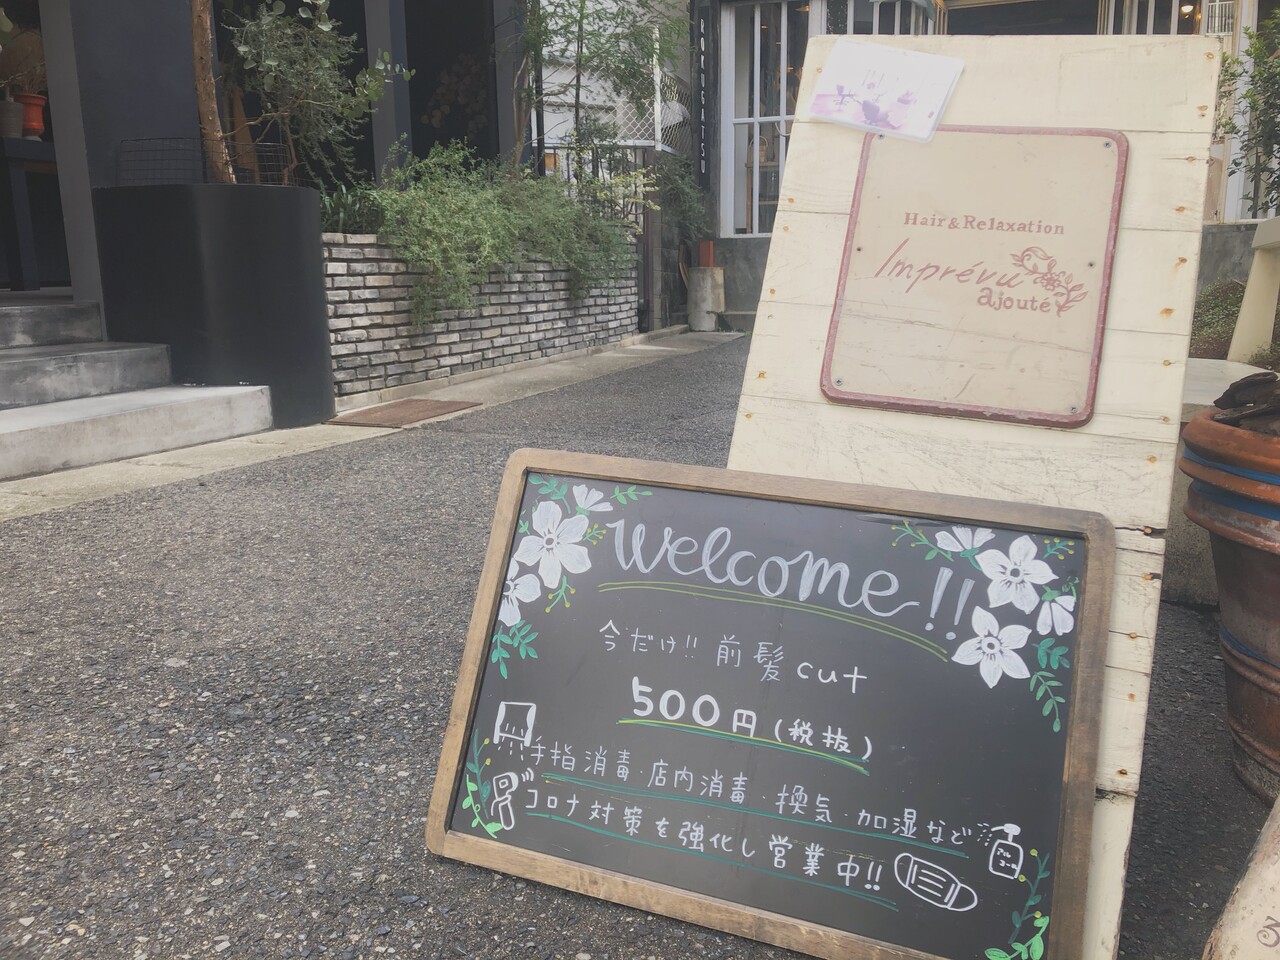 Hair & Relaxation
Imprévu
ajouté
Welcome!!
今だけ!! 前髪cut
500円(税抜)
手指消毒・店内消毒・換気・加湿など
コロナ対策を強化し営業中!!
アルコール